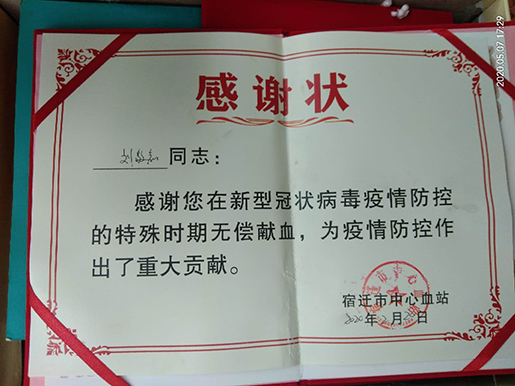 2020.05.07 17:29
感谢状
同志：
感谢您在新型冠状病毒疫情防控
的特殊时期无偿献血，为疫情防控作
出了重大贡献。
宿迁市中心血站
2020年2月 日